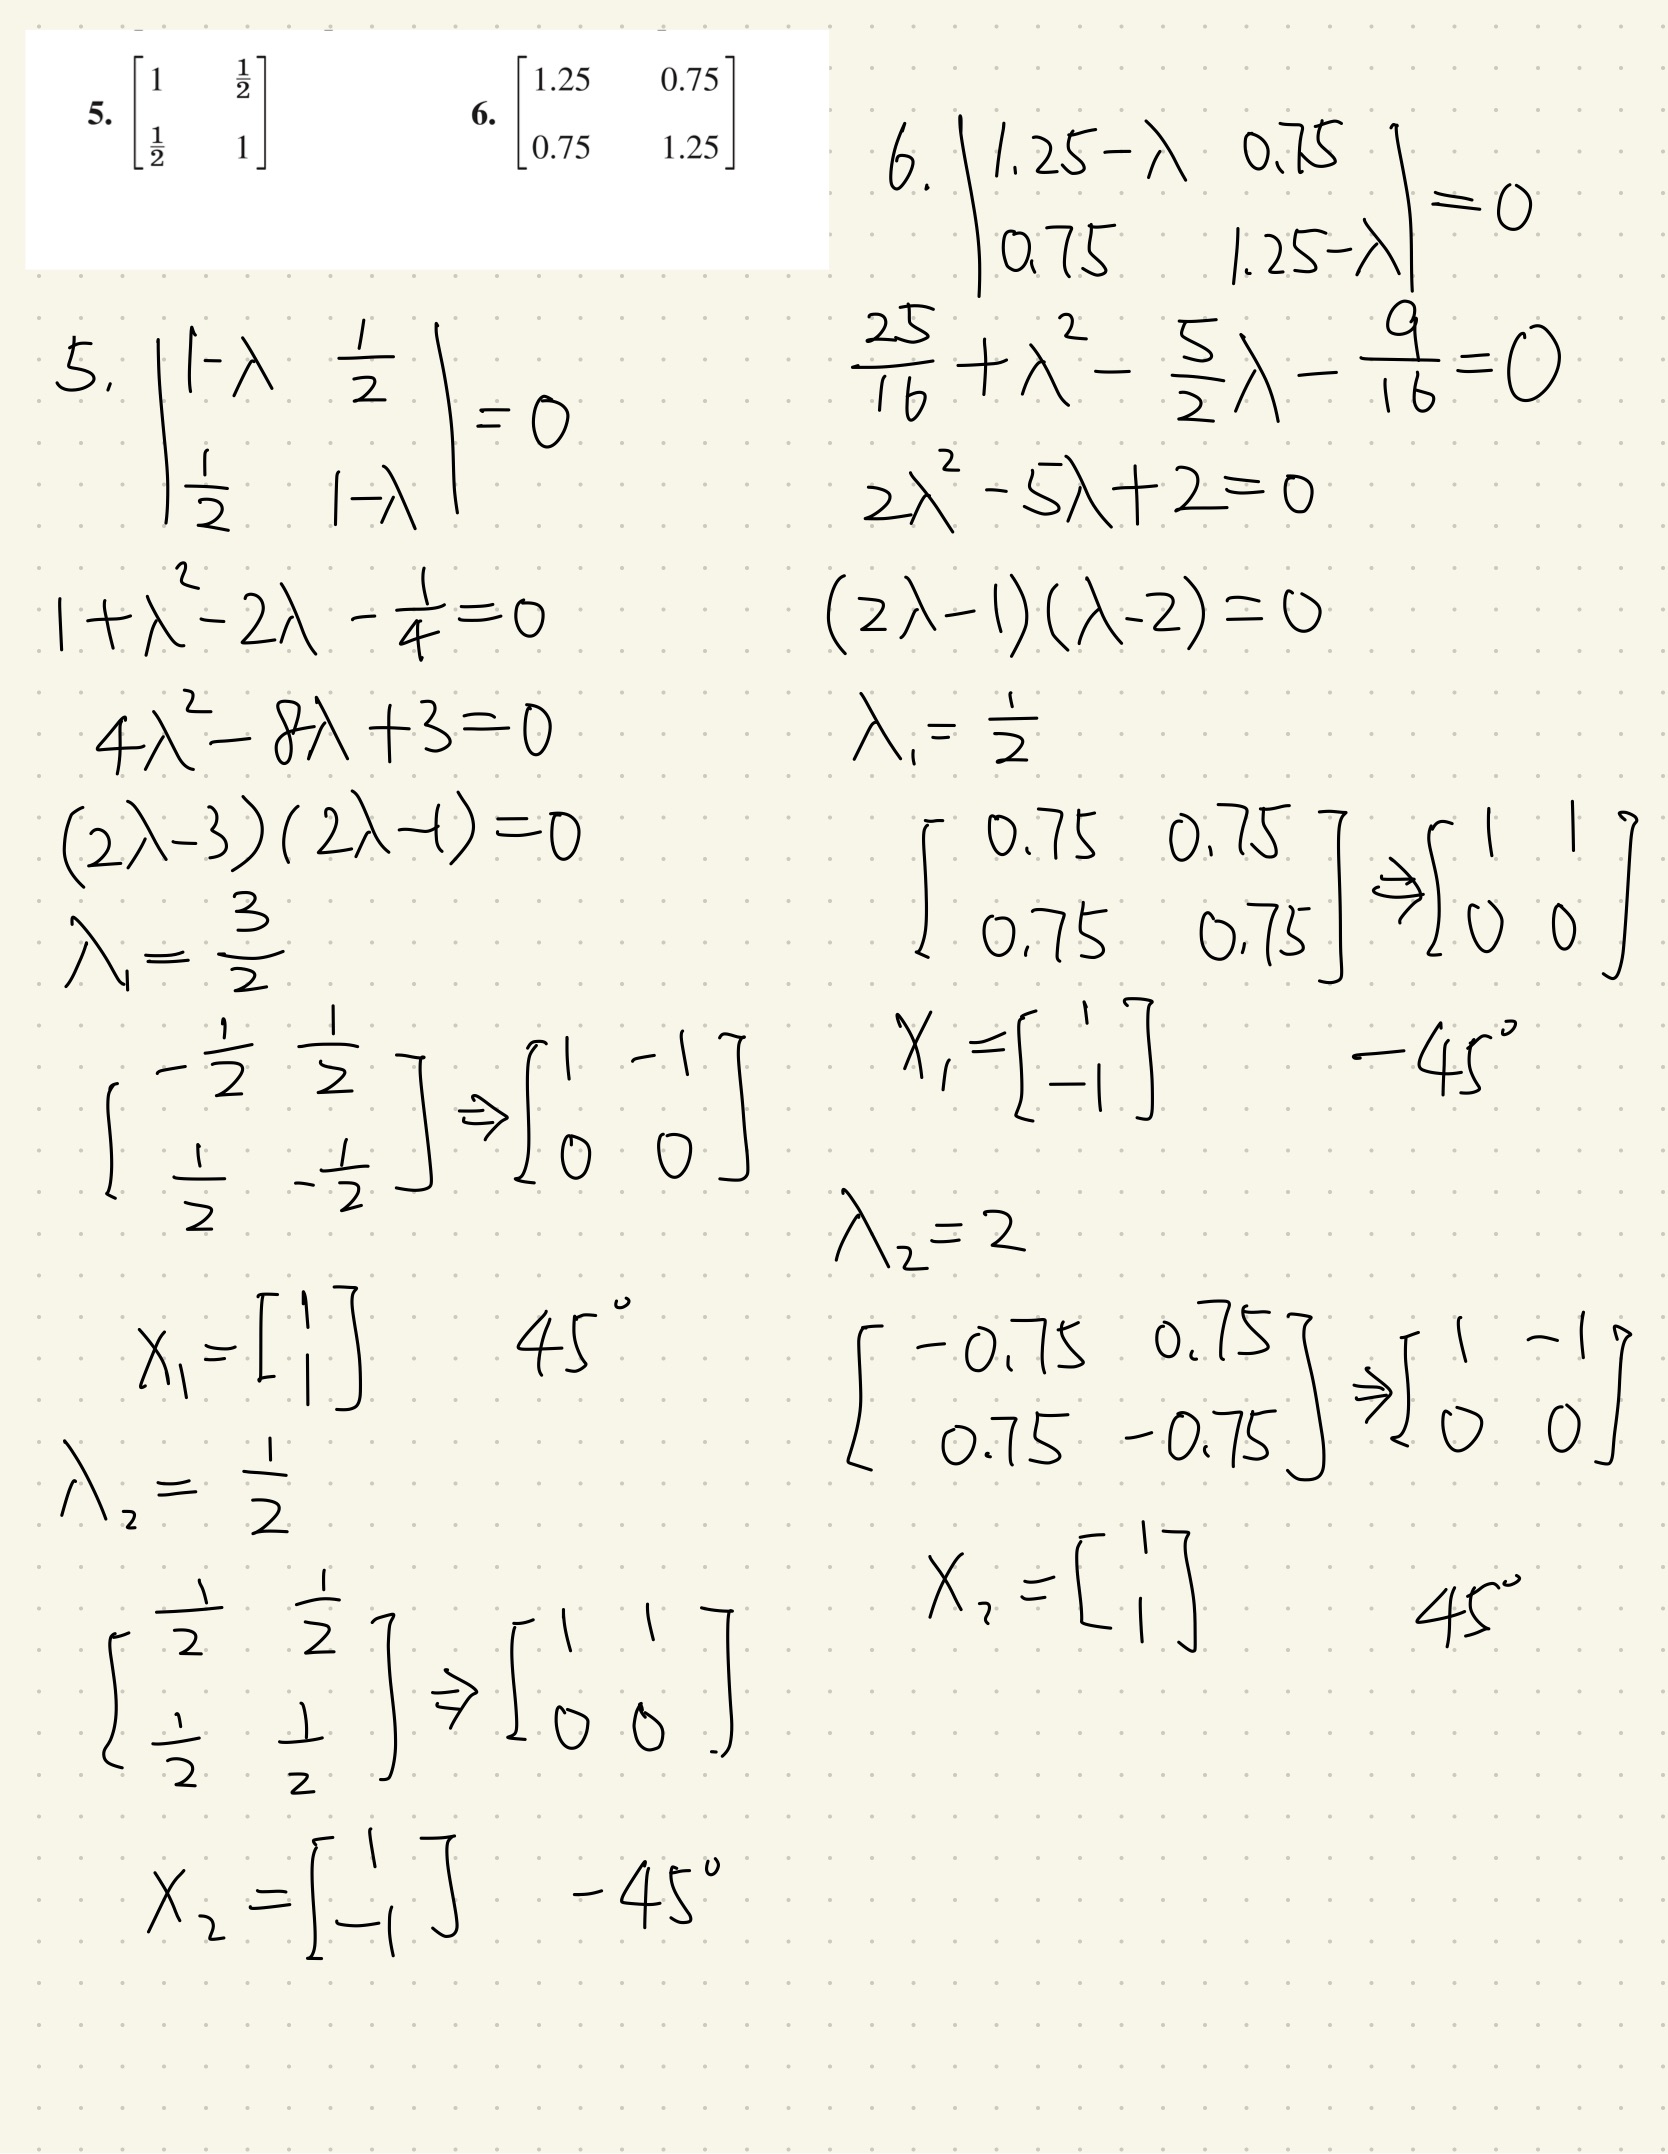 5. [1 1/2
1/2 1]
6. [1.25 0.75
0.75 1.25]
5. |1-λ 1/2
1/2 1-λ| = 0
1+λ²-2λ-1/4=0
4λ²-8λ+3=0
(2λ-3)(2λ-1)=0
λ₁=3/2
[-1/2 1/2
1/2 -1/2] ⇒ [1 -1
0 0]
X₁=[1
1] 45°
λ₂=1/2
[1/2 1/2
1/2 1/2] ⇒ [1 1
0 0]
X₂=[1
-1] -45°
6. |1.25-λ 0.75
0.75 1.25-λ| =0
25/16+λ²-5/2λ-9/16=0
2λ²-5λ+2=0
(2λ-1)(λ-2)=0
λ₁=1/2
[0.75 0.75
0.75 0.75] ⇒ [1 1
0 0]
X₁=[1
-1] -45°
λ₂=2
[-0.75 0.75
0.75 -0.75] ⇒ [1 -1
0 0]
X₂=[1
1] 45°